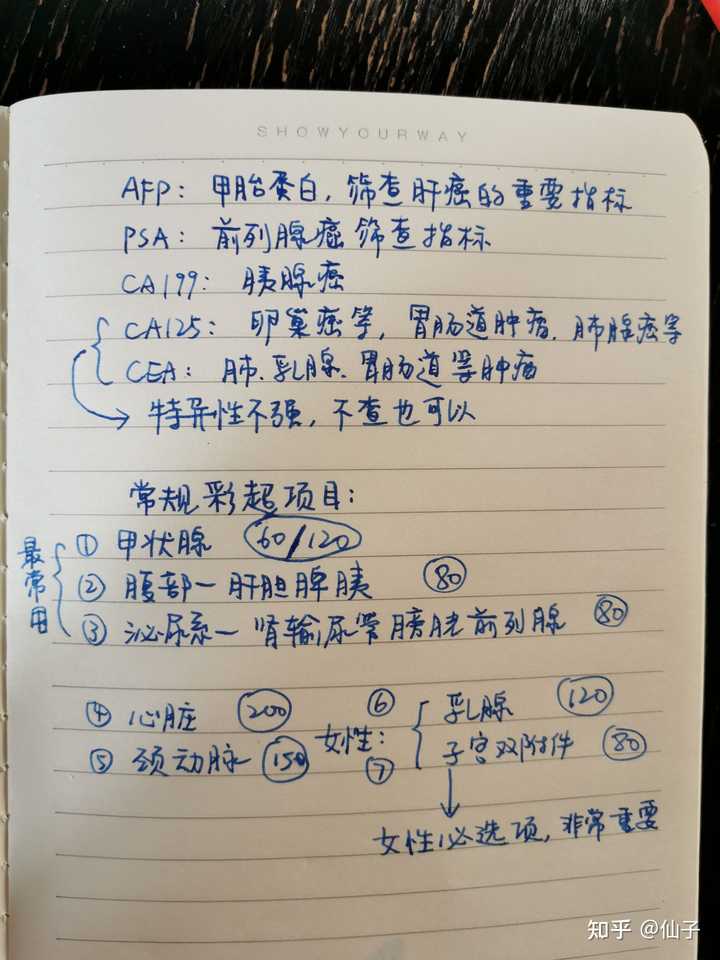 SHOWYOURWAY
AFP: 甲胎蛋白,筛查肝癌的重要指标
PSA: 前列腺癌筛查指标
CA199: 胰腺癌
CA125: 卵巢癌等,胃肠道肿瘤、肺腺癌等
CEA: 肺、乳腺、胃肠道等肿瘤
特异性不强,不查也可以
常规彩超项目:
最常用
① 甲状腺 60/120
② 腹部—肝胆脾胰 80
③ 泌尿系—肾输尿管膀胱前列腺 80
④ 心脏 200
⑤ 颈动脉 150
女性:
⑥ 乳腺 120
⑦ 子宫双附件 80
女性必选项,非常重要
知乎 @仙子